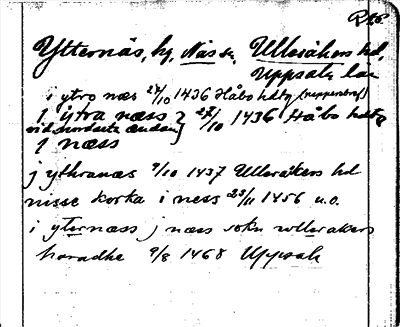 Ytternäs, by, Näs sn, Ulleråkers hd,
Uppsala län
i ytro næs 27/10 1436 Håbo hdtg (papperbref)
j ytra næss 27/10 1436 Håbo hdtg
vid nordista ändan
j næss
j ythranæs 9/10 1437 Ulleråkers hd
nisse korka i ness 23/11 1456 u.o.
i yternæss j næs sokn wlleråkers
haradhe 9/8 1468 Uppsala